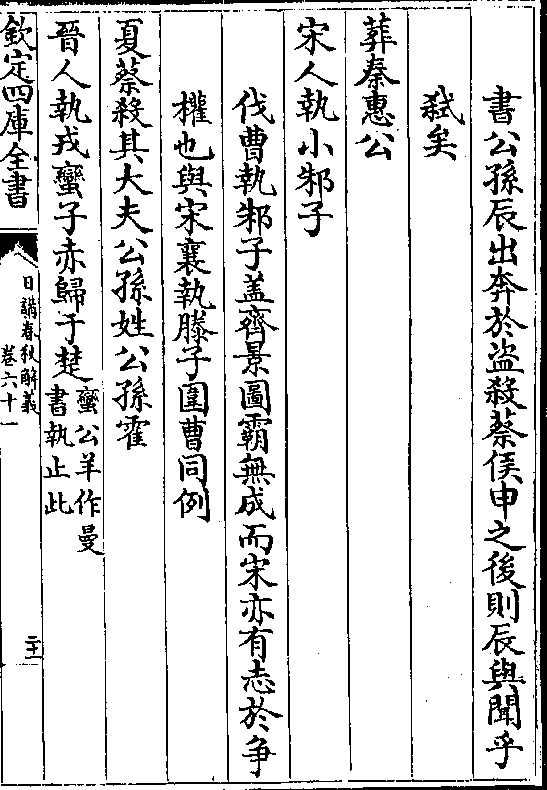 書公孫辰出奔於盜殺蔡侯申之後則辰與聞乎
弑矣
葬秦惠公
宋人執小邾子
伐曹執邾子蓋齊景圖霸無成而宋亦有志於爭
權也與宋襄執滕子圍曹同例
夏蔡殺其大夫公孫姓公孫霍
晉人執戎蠻子赤歸于楚蠻公羊作曼
書執止此
欽定四庫全書
日講春秋解義
卷六十一
二十一